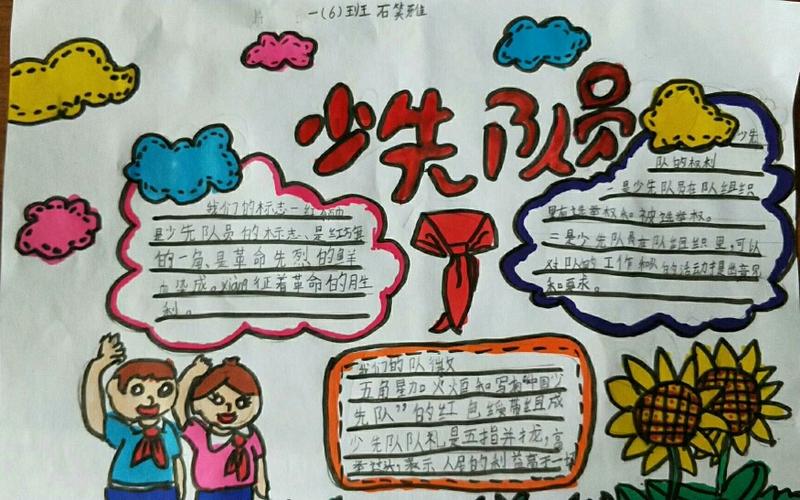 一(6)班 石笑雅
少先队员
我们的标志-红领巾
是少先队员的标志、是红旗
的一角、是革命先烈的鲜
血染成。xiàng征着革命的胜
利。
少先
队的权利
一是少先队员在队组织
里有选举权和被选举权。
二是少先队员在队组织里,可以
对队的工作和队的活动提出意见
和要求。
我们的队徽
五角星加火炬和写有“中国少
先队”的红色绶带组成
少先队队礼是五指并拢,高
表示人民的利益高于一切